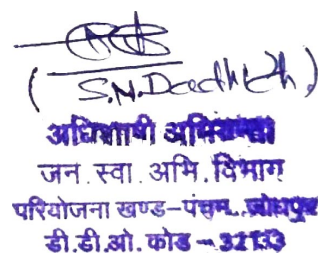 (S.N. Dadhich)
अधिशाषी अभियन्ता
जन.स्वा.अभि.विभाग
परियोजना खण्ड-पंचम, जोधपुर
डी.डी.ओ. कोड -